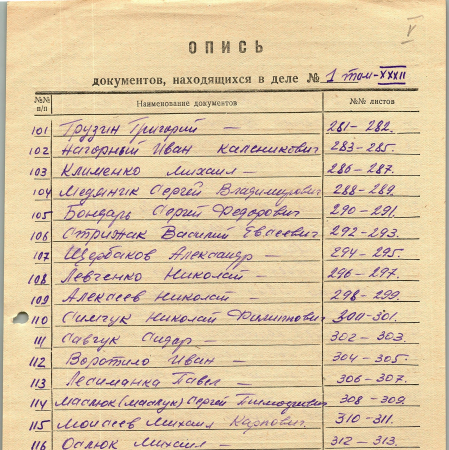 V
ОПИСЬ
документов, находящихся в деле № 1 том-XXXII
№№ п/п Наименование документов №№ листов
101 Грузин Григорий — 281-282.
102 Нагорный Иван Каленикович 283-285.
103 Клименко Михаил — 286-287.
104 Медяник Сергей Владимирович 288-289.
105 Бондарь Сергей Федорович 290-291.
106 Стрижак Василий Евсеевич 292-293.
107 Щербаков Александр — 294-295.
108 Левченко Николай — 296-297.
109 Алексеев Николай — 298-299.
110 Симчук Николай Филиппович 300-301.
111 Савчук Сидар — 302-303.
112 Воротило Иван — 304-305.
113 Лесиманка Павел — 306-307.
114 Маслюк (Маслук) Сергей 308-309.
115 Моисеев Михаил Карпович. 310-311.
116 Ослюк Михаил — 312-313.